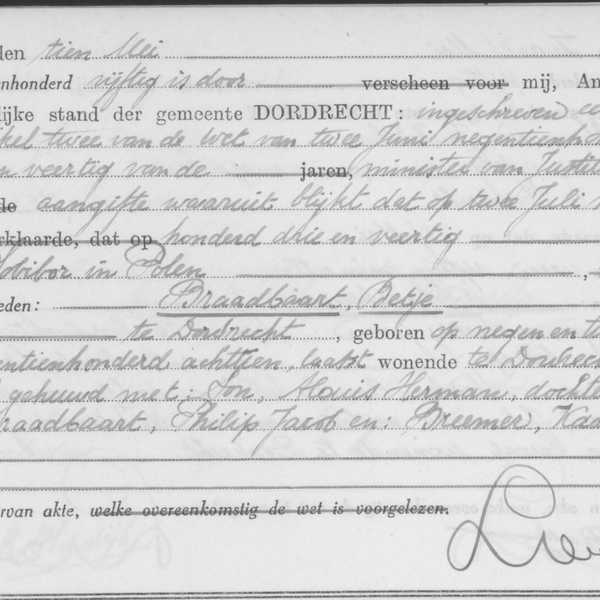 den tien Mei
enhonderd vijftig is door verscheen voor mij, An
lijke stand der gemeente DORDRECHT: ingeschreven ee
kel twee van de wet van twee Juni negentienho
n veertig van de jaren, minister van Justit
de aangifte waaruit blijkt dat op twee Juli
rklaarde, dat op honderd drie en veertig
obibor in Polen ,
eden: Braadbaart, Betje
te Dordrecht , geboren op negen en t
entienhonderd achttien, laatst wonende te
gehuwd met: Herman, dochte
raadbaart, Philip Jacob en: Breemer, Kaa
rvan akte, welke overeenkomstig de wet is voorgelezen.